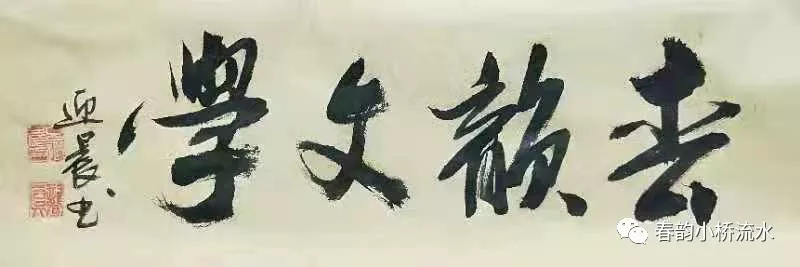 春韻文學
迎晨书
春韵小桥流水